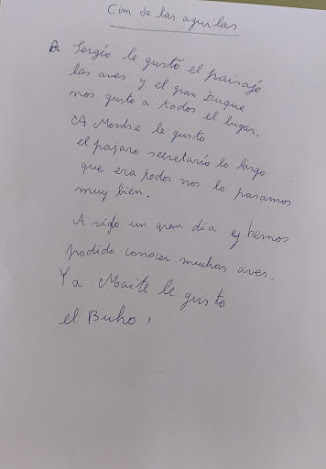 Cim de las aguilas
A Sergio le gustó el paisaje
las aves y el gran Duque
nos gusto a todos el lugar.
A Montse le gusto
el pajaro secretario lo largo
que era todos nos lo pasamos
muy bien.
A sido un gran dia y hemos
podido conocer muchas aves.
Y a Maite le gusto
el Buho.